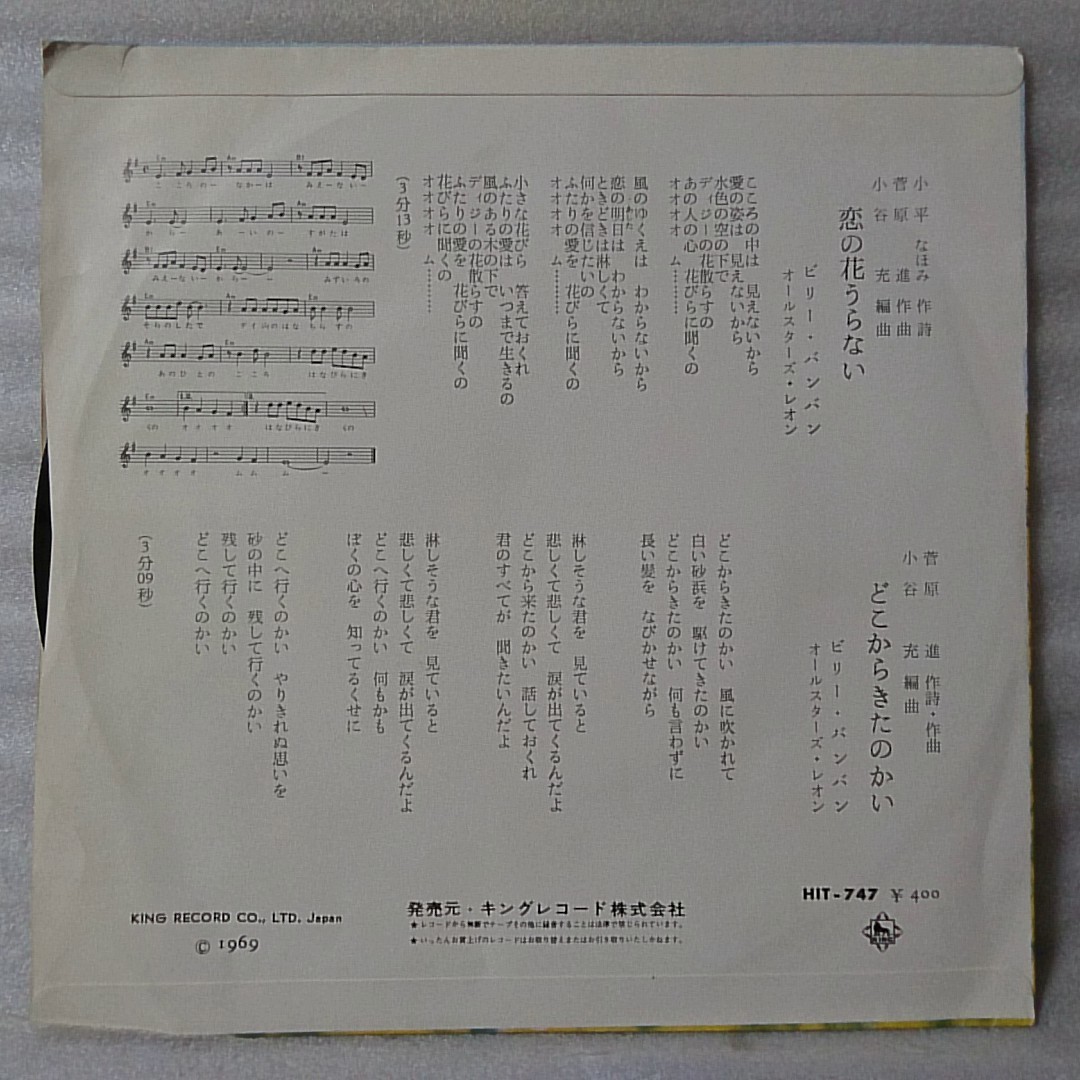 小平なほみ 作詩
菅原 進 作曲
小谷 充 編曲
恋の花うらない
ビリー・バンバン
オールスターズ・レオン
こころの中は 見えないから
愛の姿は 見えないから
水色の空の下で
ディジーの花散らすの
あの人の心 花びらに聞くの
オオオオ ム………
風のゆくえは わからないから
恋の明日は わからないから
あした
ときどきは淋しくて
何かを信じたいの
ふたりの愛を 花びらに聞くの
オオオオ ム………
小さな花びら 答えておくれ
ふたりの愛は いつまで生きるの
風のある木の下で
ディジーの花散らすの
ふたりの愛を 花びらに聞くの
花びらに聞くの
オオオオ ム………
(3分13秒)
Em Am B7
こ ころのー なかーは みえーないー
からー あーいのー すがたは
みえーないーからーー みずいろの
そらのしたで デイジのはな ちらすの
あのひとの こころ はなびらにき
くの オオオオ はなびらにき くの
オオオオ ムムムー
菅原 進 作詩・作曲
小谷 充 編曲
どこからきたのかい
ビリー・バンバン
オールスターズ・レオン
どこからきたのかい 風に吹かれて
白い砂浜を 駆けてきたのかい
どこからきたのかい 何も言わずに
長い髪を なびかせながら
淋しそうな君を 見ていると
悲しくて悲しくて 涙が出てくるんだよ
どこから来たのかい 話しておくれ
君のすべてが 聞きたいんだよ
淋しそうな君を 見ていると
悲しくて悲しくて 涙が出てくるんだよ
どこへ行くのかい 何もかも
ぼくの心を 知ってるくせに
どこへ行くのかい やりきれぬ思いを
砂の中に 残して行くのかい
残して行くのかい
どこへ行くのかい
(3分09秒)
HIT-747 ¥400
KING
発売元・キングレコード株式会社
★レコードから無断でテープその他に録音することは法律で禁じられています。
★いったんお買上げのレコードはお取り替えまたはお引き取りいたしかねます。
KING RECORD CO., LTD. Japan
© 1969